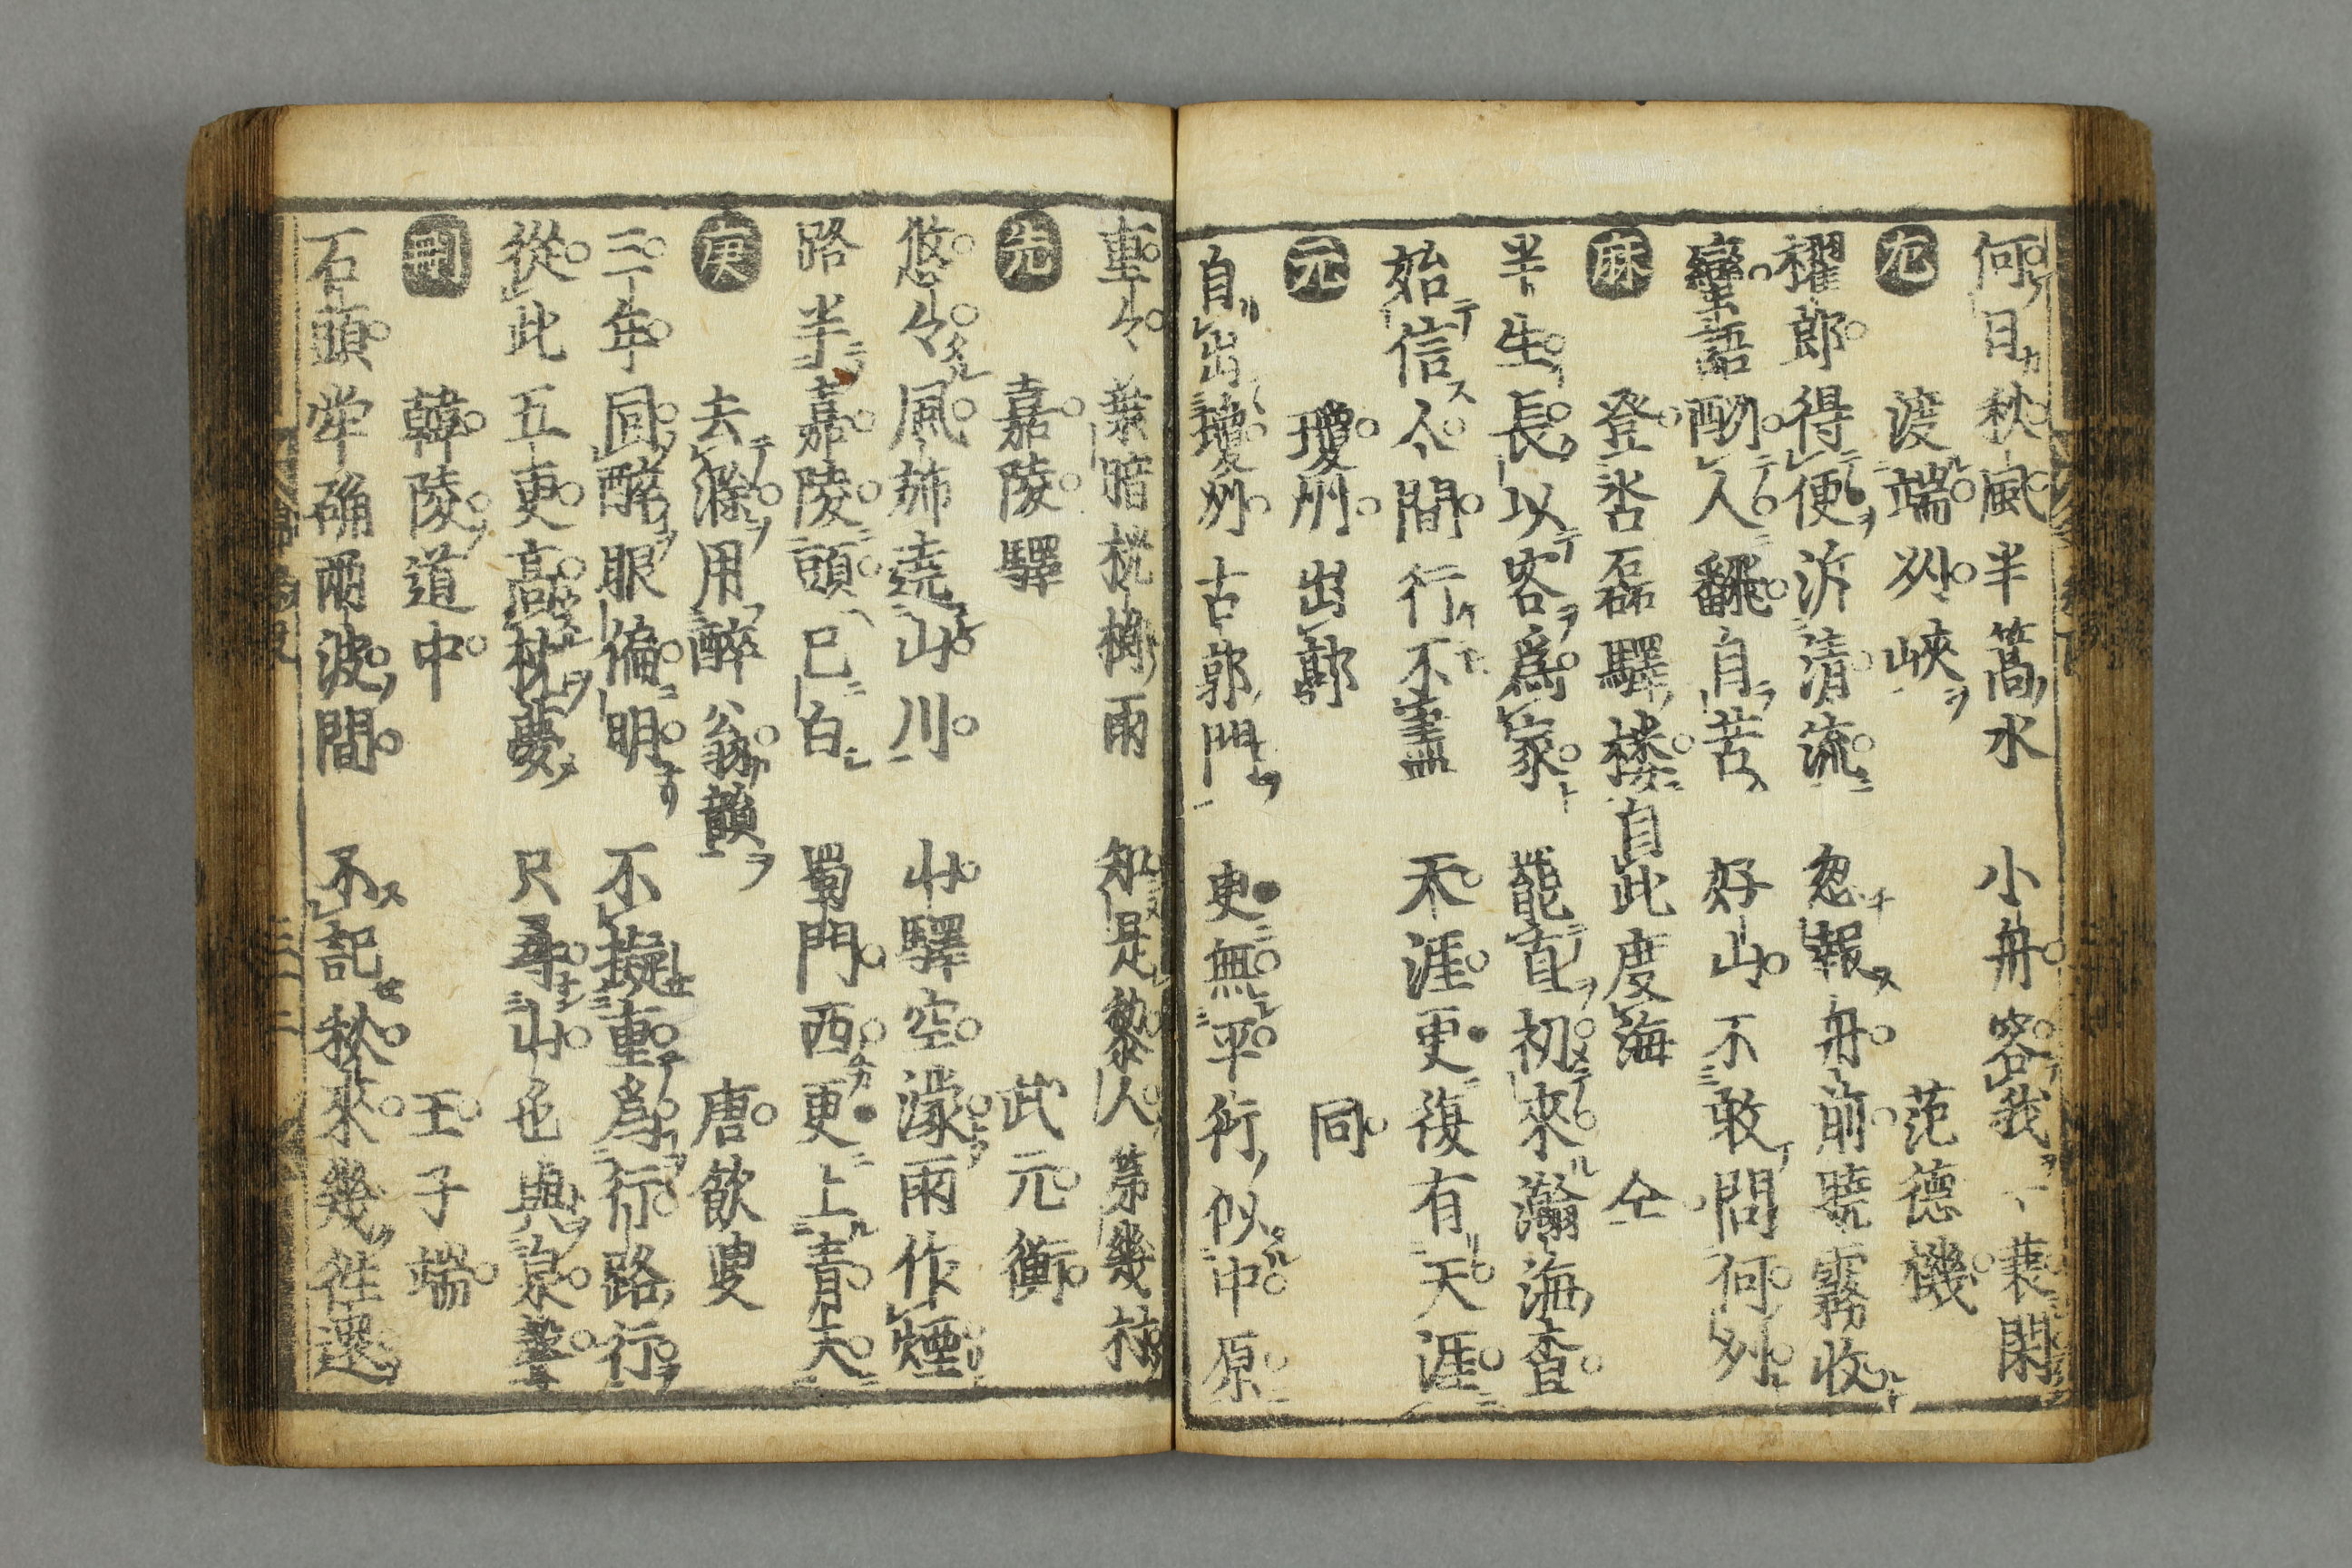 何日秋風半篙水 小舟容我一蓑閑
尤 渡端州峽 范德機
櫂郎得便泝清流 忽報舟前曉霧收
蠻語酬人翻自苦 好山不敢問何州
麻 登呇磊驛樓自此度海 仝
半生長以客爲家 罷直初來瀚海査
始信人間行不盡 天涯更復有天涯
元 瓊州出郭 同
自出瓊州古郭門 更無平衍似中原
重々葉暗桄榔雨 知是黎人第幾村
先 嘉陵驛 武元衡
悠々風旆遶山川 山驛空濛雨作煙
路半嘉陵頭已白 蜀門西更上青天
庚 去滁用醉翁韻 唐飲叟
三年回醉眼偏明 不擬重爲行路行
從此五更高枕夢 只尋山色與泉聲
刪 韓陵道中 王子端
石頭犖确兩波間 不記秋來幾往還